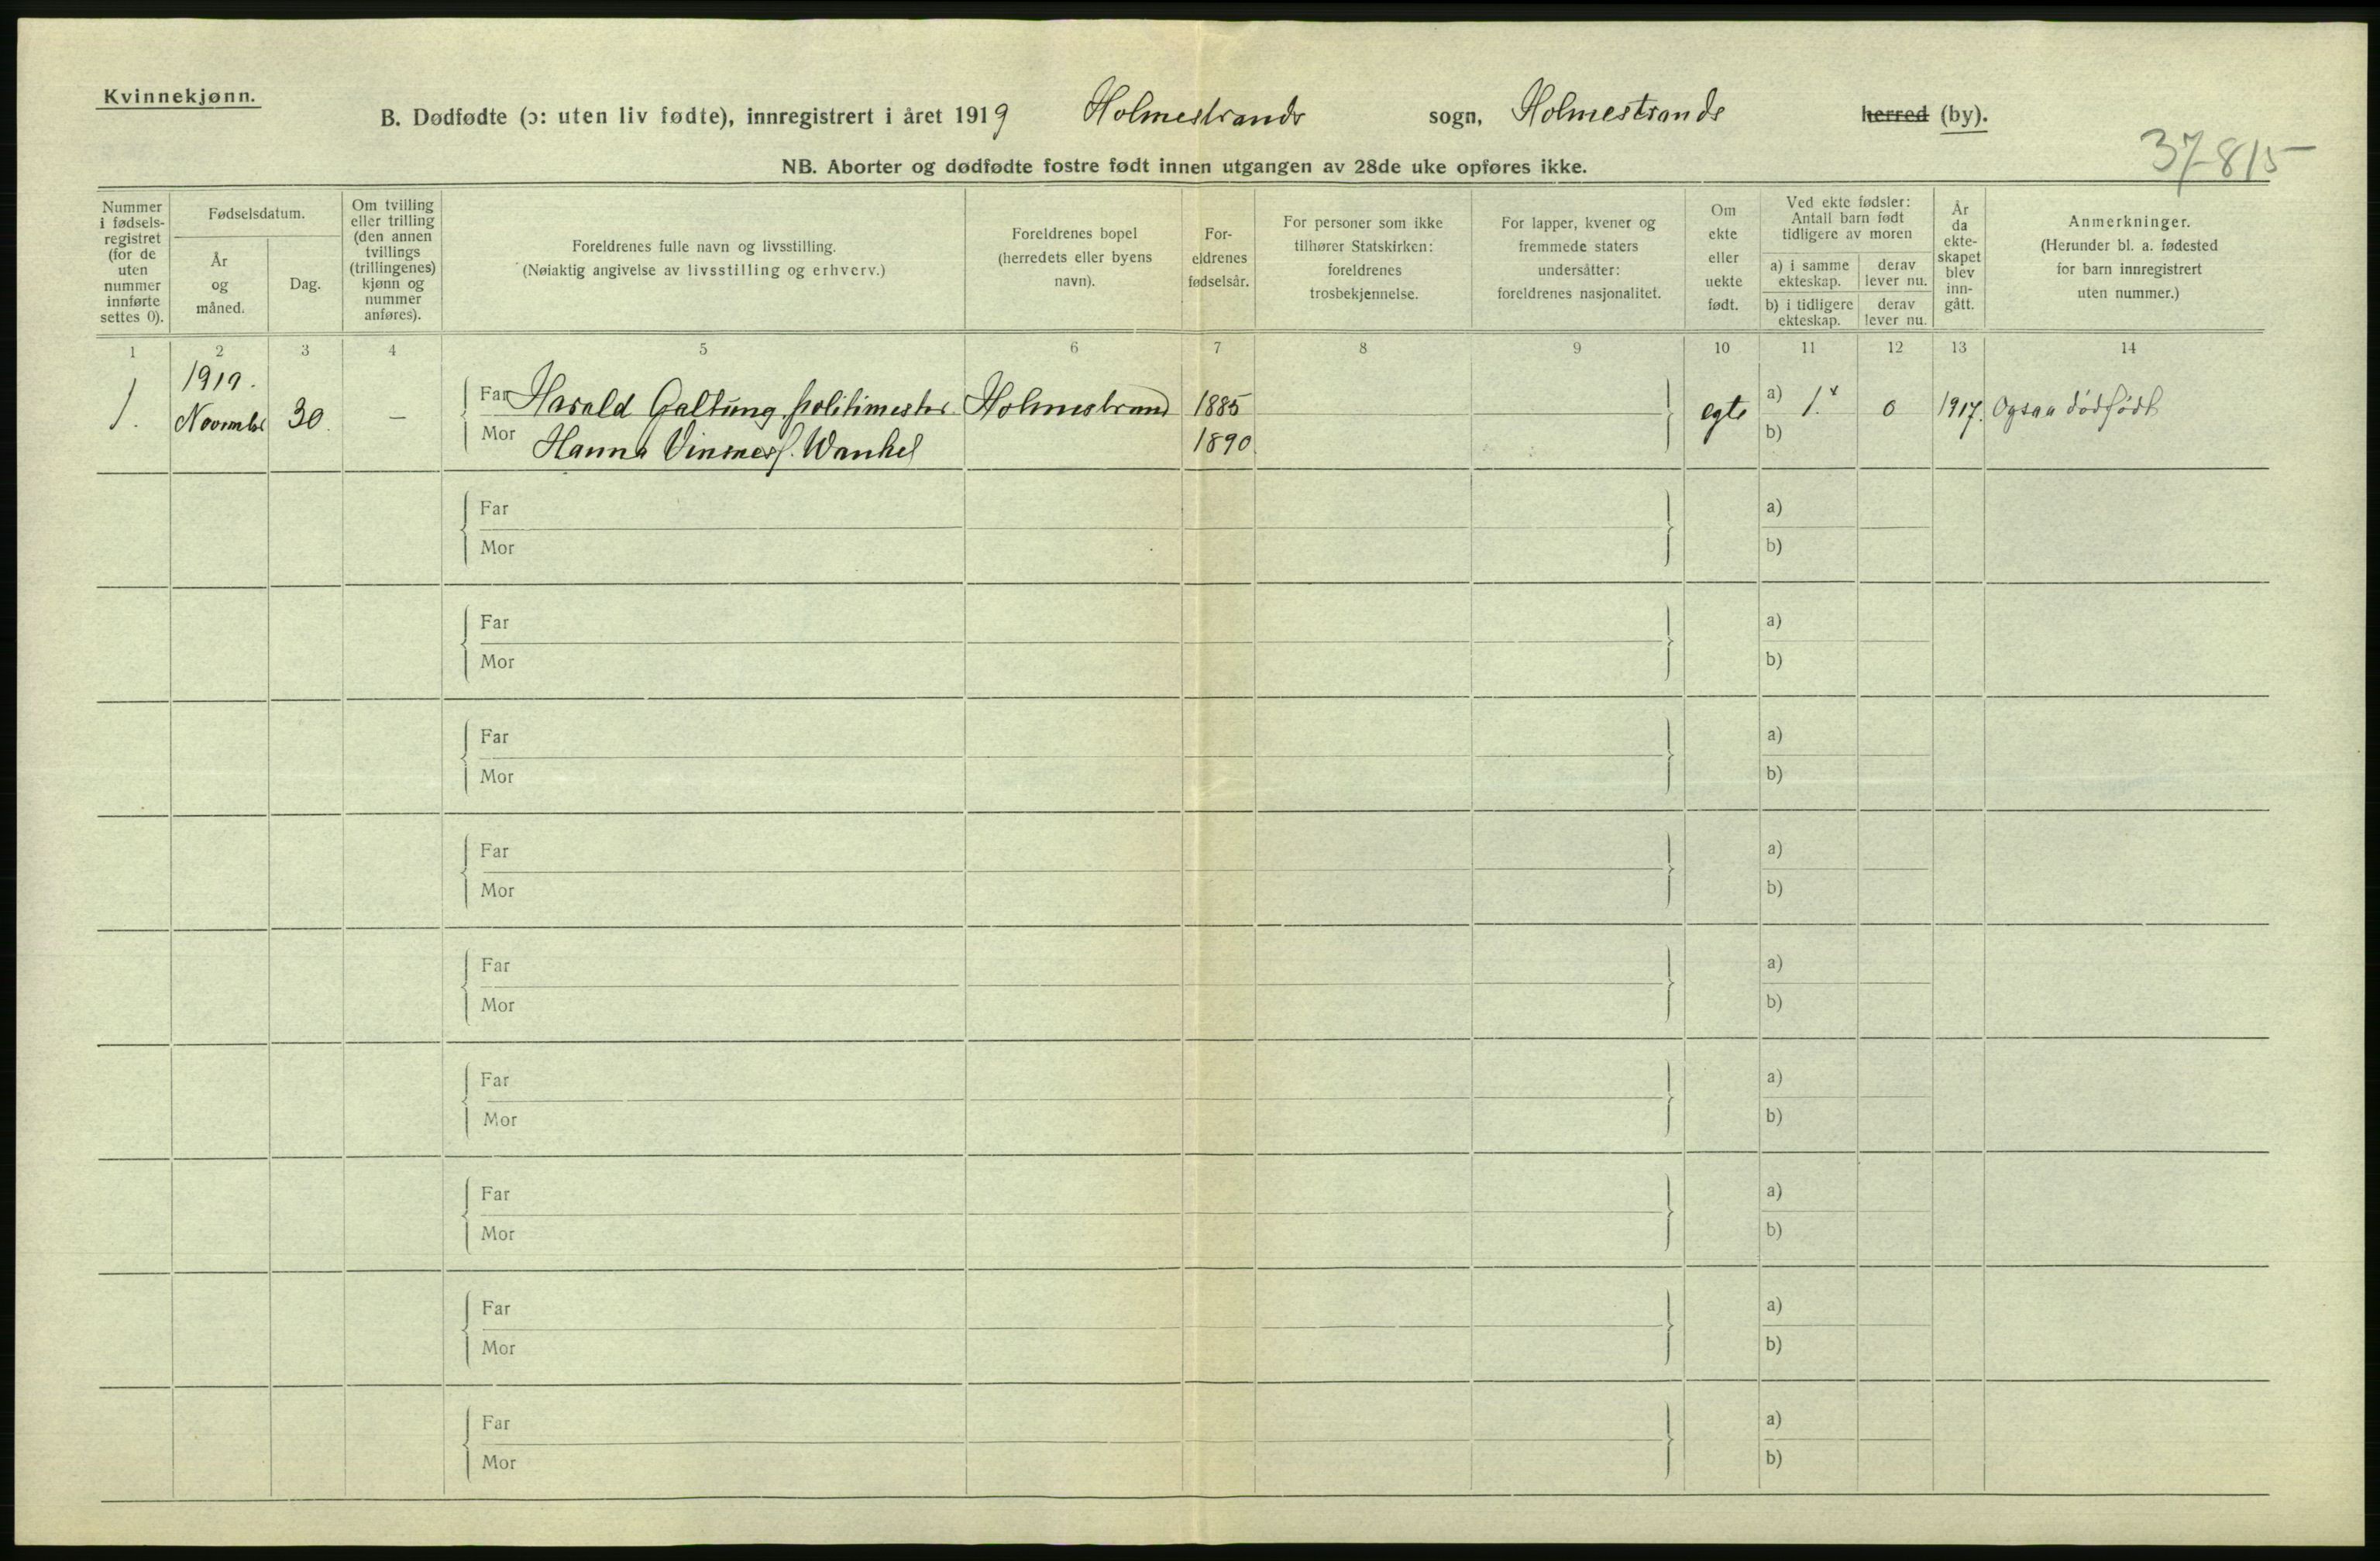 Kvinnekjønn.
B. Dødfødte (ɔ: uten liv fødte), innregistrert i året 1919 Holmestrands sogn, Holmestrands herred (by).
37-815
NB. Aborter og dødfødte fostre født innen utgangen av 28de uke opføres ikke.
Nummer i fødsels-registret (for de uten nummer innførte settes 0).
Fødselsdatum.
År og måned.
Dag.
Om tvilling eller trilling (den annen tvillings (trillingenes) kjønn og nummer anføres).
Foreldrenes fulle navn og livsstilling.
(Nøiaktig angivelse av livsstilling og erhverv.)
Foreldrenes bopel (herredets eller byens navn).
For-eldrenes fødselsår.
For personer som ikke tilhører Statskirken: foreldrenes trosbekjennelse.
For lapper, kvener og fremmede staters undersåtter: foreldrenes nasjonalitet.
Om ekte eller uekte født.
Ved ekte fødsler: Antall barn født tidligere av moren
a) i samme ekteskap.
derav lever nu.
b) i tidligere ekteskap.
derav lever nu.
År da ekte-skapet blev inn-gått.
Anmerkninger.
(Herunder bl. a. fødested for barn innregistrert uten nummer.)
1 2 3 4 5 6 7 8 9 10 11 12 13 14
1919.
1. November 30. — Far Harald Galtung, politimester. Holmestrand 1885 egte a) 1.x 0 1917. Ogsaa dödfödt
Mor Hanna Vinsnes f. Wankel 1890. b)
Far a)
Mor b)
Far a)
Mor b)
Far a)
Mor b)
Far a)
Mor b)
Far a)
Mor b)
Far a)
Mor b)
Far a)
Mor b)
Far a)
Mor b)
Far a)
Mor b)